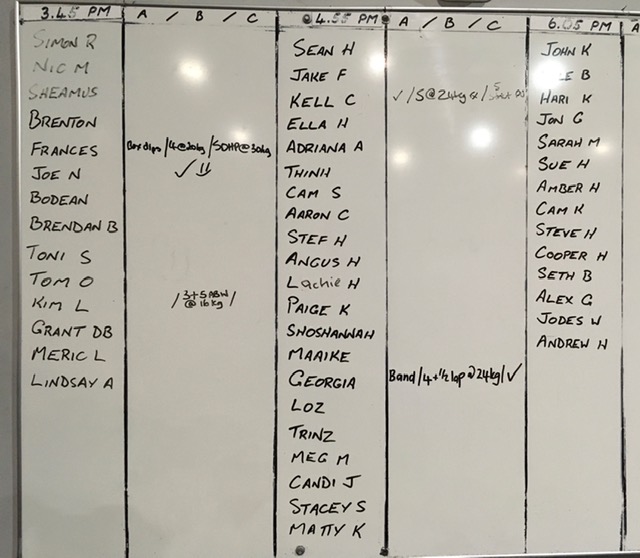 3.45 PM
A / B / C
SIMON R
NIC M
SHEAMUS
BRENTON
FRANCES
Box dips /4@20kg /SDHP@30kg
JOE N
✓
BODEAN
BRENDAN B
TONI S
TOM O
KIM L
/ 3+5 ABW / @16kg
GRANT DB
MERIC L
LINDSAY A
4.55 PM
A / B / C
SEAN H
JAKE F
KELL C
✓/5@24kg /5
ELLA H
ADRIANA A
THINH
CAM S
AARON C
STEF H
ANGUS H
Lachie H
PAIGE K
SHOSHANNAH
MAAIKE
GEORGIA
Band /4+1/2 lap@24kg/✓
LOZ
TRINZ
MEG M
CANDI J
STACEY S
MATTY K
6.05 PM
A
JOHN K
B
HARI K
JON G
SARAH M
SUE H
AMBER H
CAM K
STEVE H
COOPER H
SETH B
ALEX G
JODES W
ANDREW H